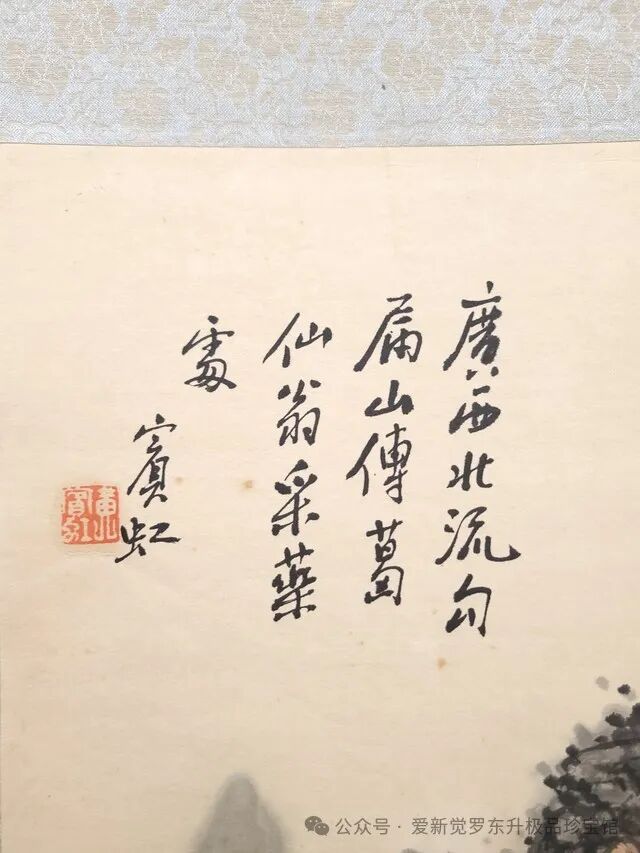 廣西北流勾
扇山傳葛
仙翁采藥
處
賓虹
黃賓虹
公众号 · 爱新觉罗东升极品珍宝馆